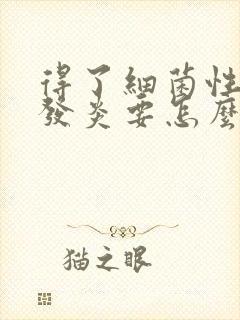 得了細菌性
發炎要怎麼
猫之眼